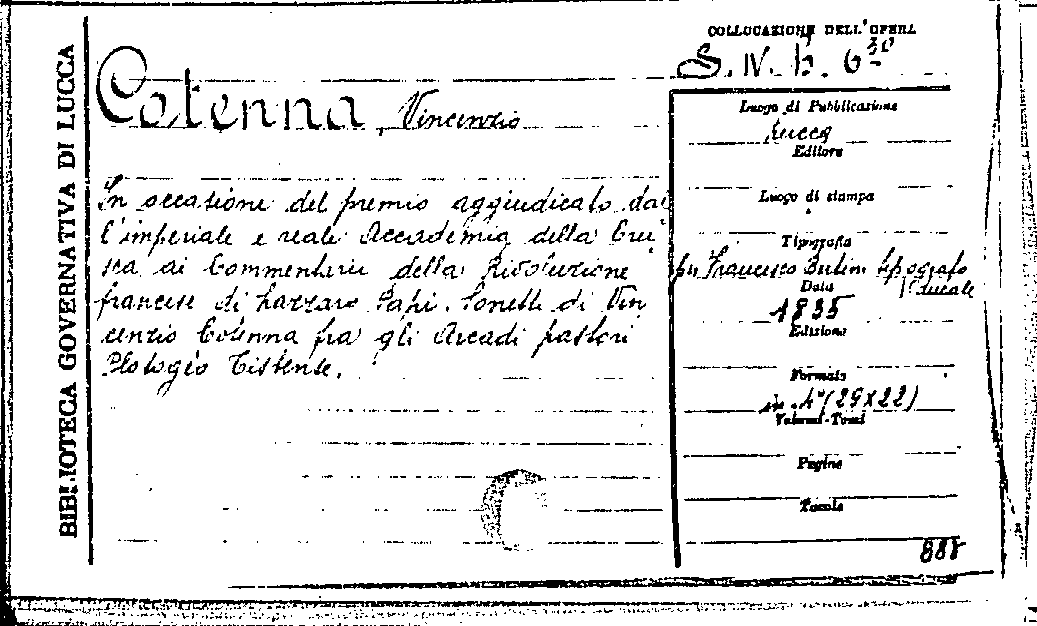 BIBLIOTECA GOVERNATIVA DI LUCCA
COLLOCAZIONE DELL'OPERA
S. IV. b. 6
Cotenna, Vincenzio
In occasione del premio aggiudicato dal
l'imperiale e reale Accademia della Cru
sca ai Commentarii della Rivoluzione
francese di Lazzaro Papi. Sonetti di Vin
cenzio Cotenna fra gli Arcadi pastori
Tistente.
Luogo di Pubblicazione
Lucca
Editore
Luogo di stampa
Tipografia
per Francesco Bertini tipografo
Ducale
Data
1835
Edizione
Formato
in 4° (29x22)
Volumi-Tomi
Pagine
Tavole